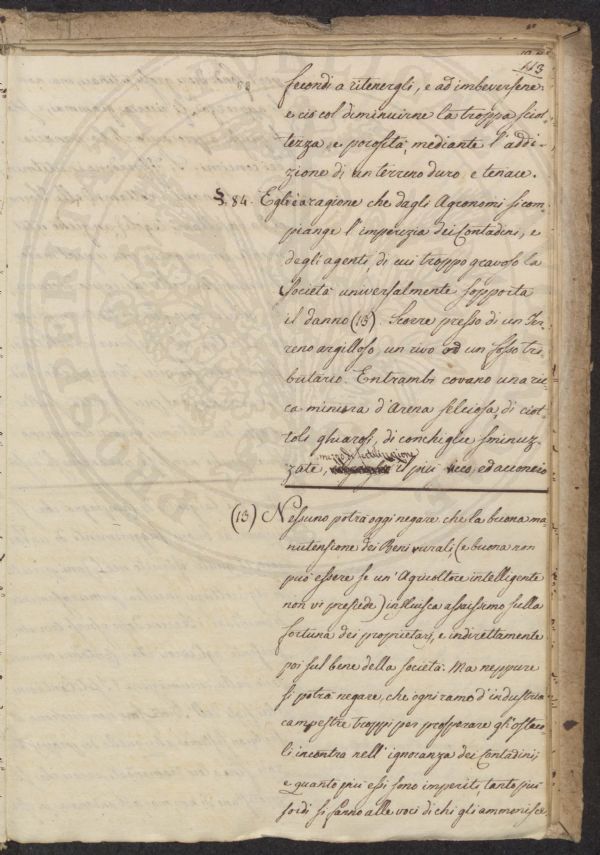 113
fecondi a ritenergli, e ad imbeversene:
e ciò col diminuirne la troppa sciol-
tezza, e porosità, mediante l'addi-
zione di un terreno duro e tenace.
§. 84. Egli è a ragione che dagli Agronomi si com-
piange l'imperizia dei Contadini, e
degli agenti, di cui troppo gravoso la
Società universalmente sopporta
il danno (13). Scorre presso di un Ter-
reno argilloso, un rivo od un fosso tri-
butario. Entrambi covano una ric-
ca miniera d'Arena selciosa, di ciot-
toli ghiarosi, di conchiglie sminuz-
mezzo di fertilizzazione
zate, il più ricco, ed acconcio
(13) Nessuno potrà oggi negare che la buona ma-
nutensione dei Beni rurali, (e buona non
può essere se un' Agricoltore intelligente
non vi presiede) influisca assaissimo sulla
fortuna dei proprietarj, e indirettamente
poi sul bene della società. Ma neppure
si potrà negare, che ogni ramo d'industria
campestre troppi per prosperare gli ostaco-
li incontra nell'ignoranza dei Contadini
e quanto più essi sono imperiti, tanto più
sordi si fanno alle voci di chi gli ammonisce